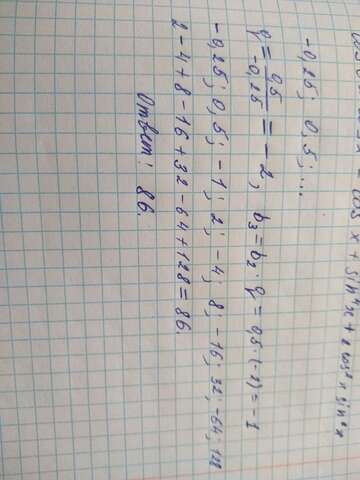 = cos x + sin⁴x + 2 cos² x sin² x
-0,25; 0,5; ...
q = 0,5 / -0,25 = -2, b₃ = b₂ · q = 0,5 · (-2) = -1
-0,25; 0,5; -1; 2; -4; 8; -16; 32; -64; 128
2 - 4 + 8 - 16 + 32 - 64 + 128 = 86.
Ответ: 86.